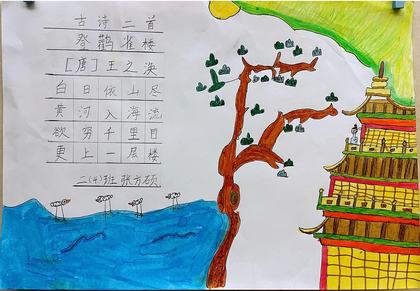 古诗二首
登鹳雀楼
[唐]王之涣
白日依山尽
黄河入海流
欲穷千里目
更上一层楼
二(4)班 张方硕